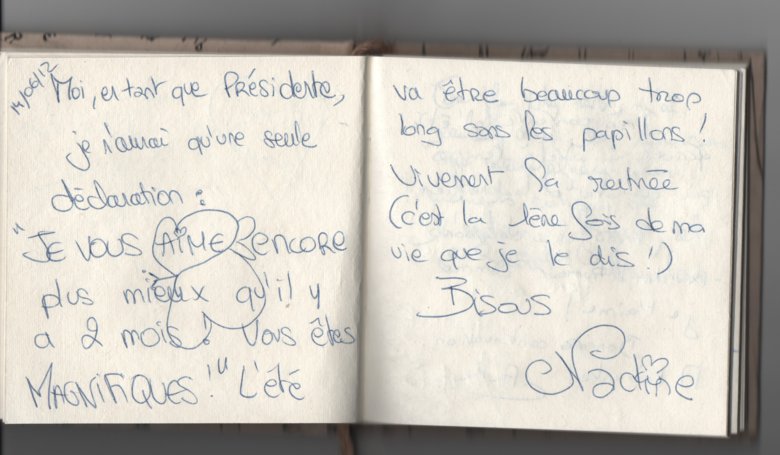 14/06/12
Moi, en tant que Présidente,
je n'aurai qu'une seule
déclaration :
"JE VOUS AIME ENCORE
plus mieux qu'il y
a 2 mois ! Vous êtes
MAGNIFIQUES !" L'été
va être beaucoup trop
long sans les papillons !
Vivement la rentrée
(c'est la 1ère fois de ma
vie que je le dis !)
Bisous
Nadine